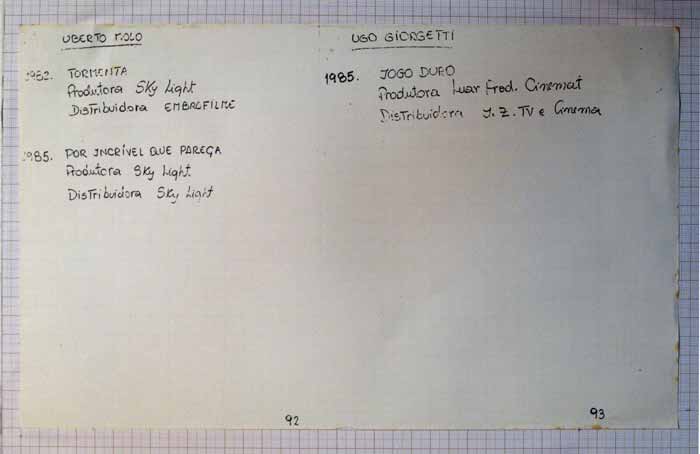 UBERTO MOLO
1982. TORMENTA
Produtora Sky Light
Distribuidora EMBRAFILME
1985. POR INCRÍVEL QUE PAREÇA
Produtora Sky Light
Distribuidora Sky Light
92
UGO GIORGETTI
1985. JOGO DURO
Produtora Luar Prod. Cinemat
Distribuidora J.Z. TV e Cinema
93